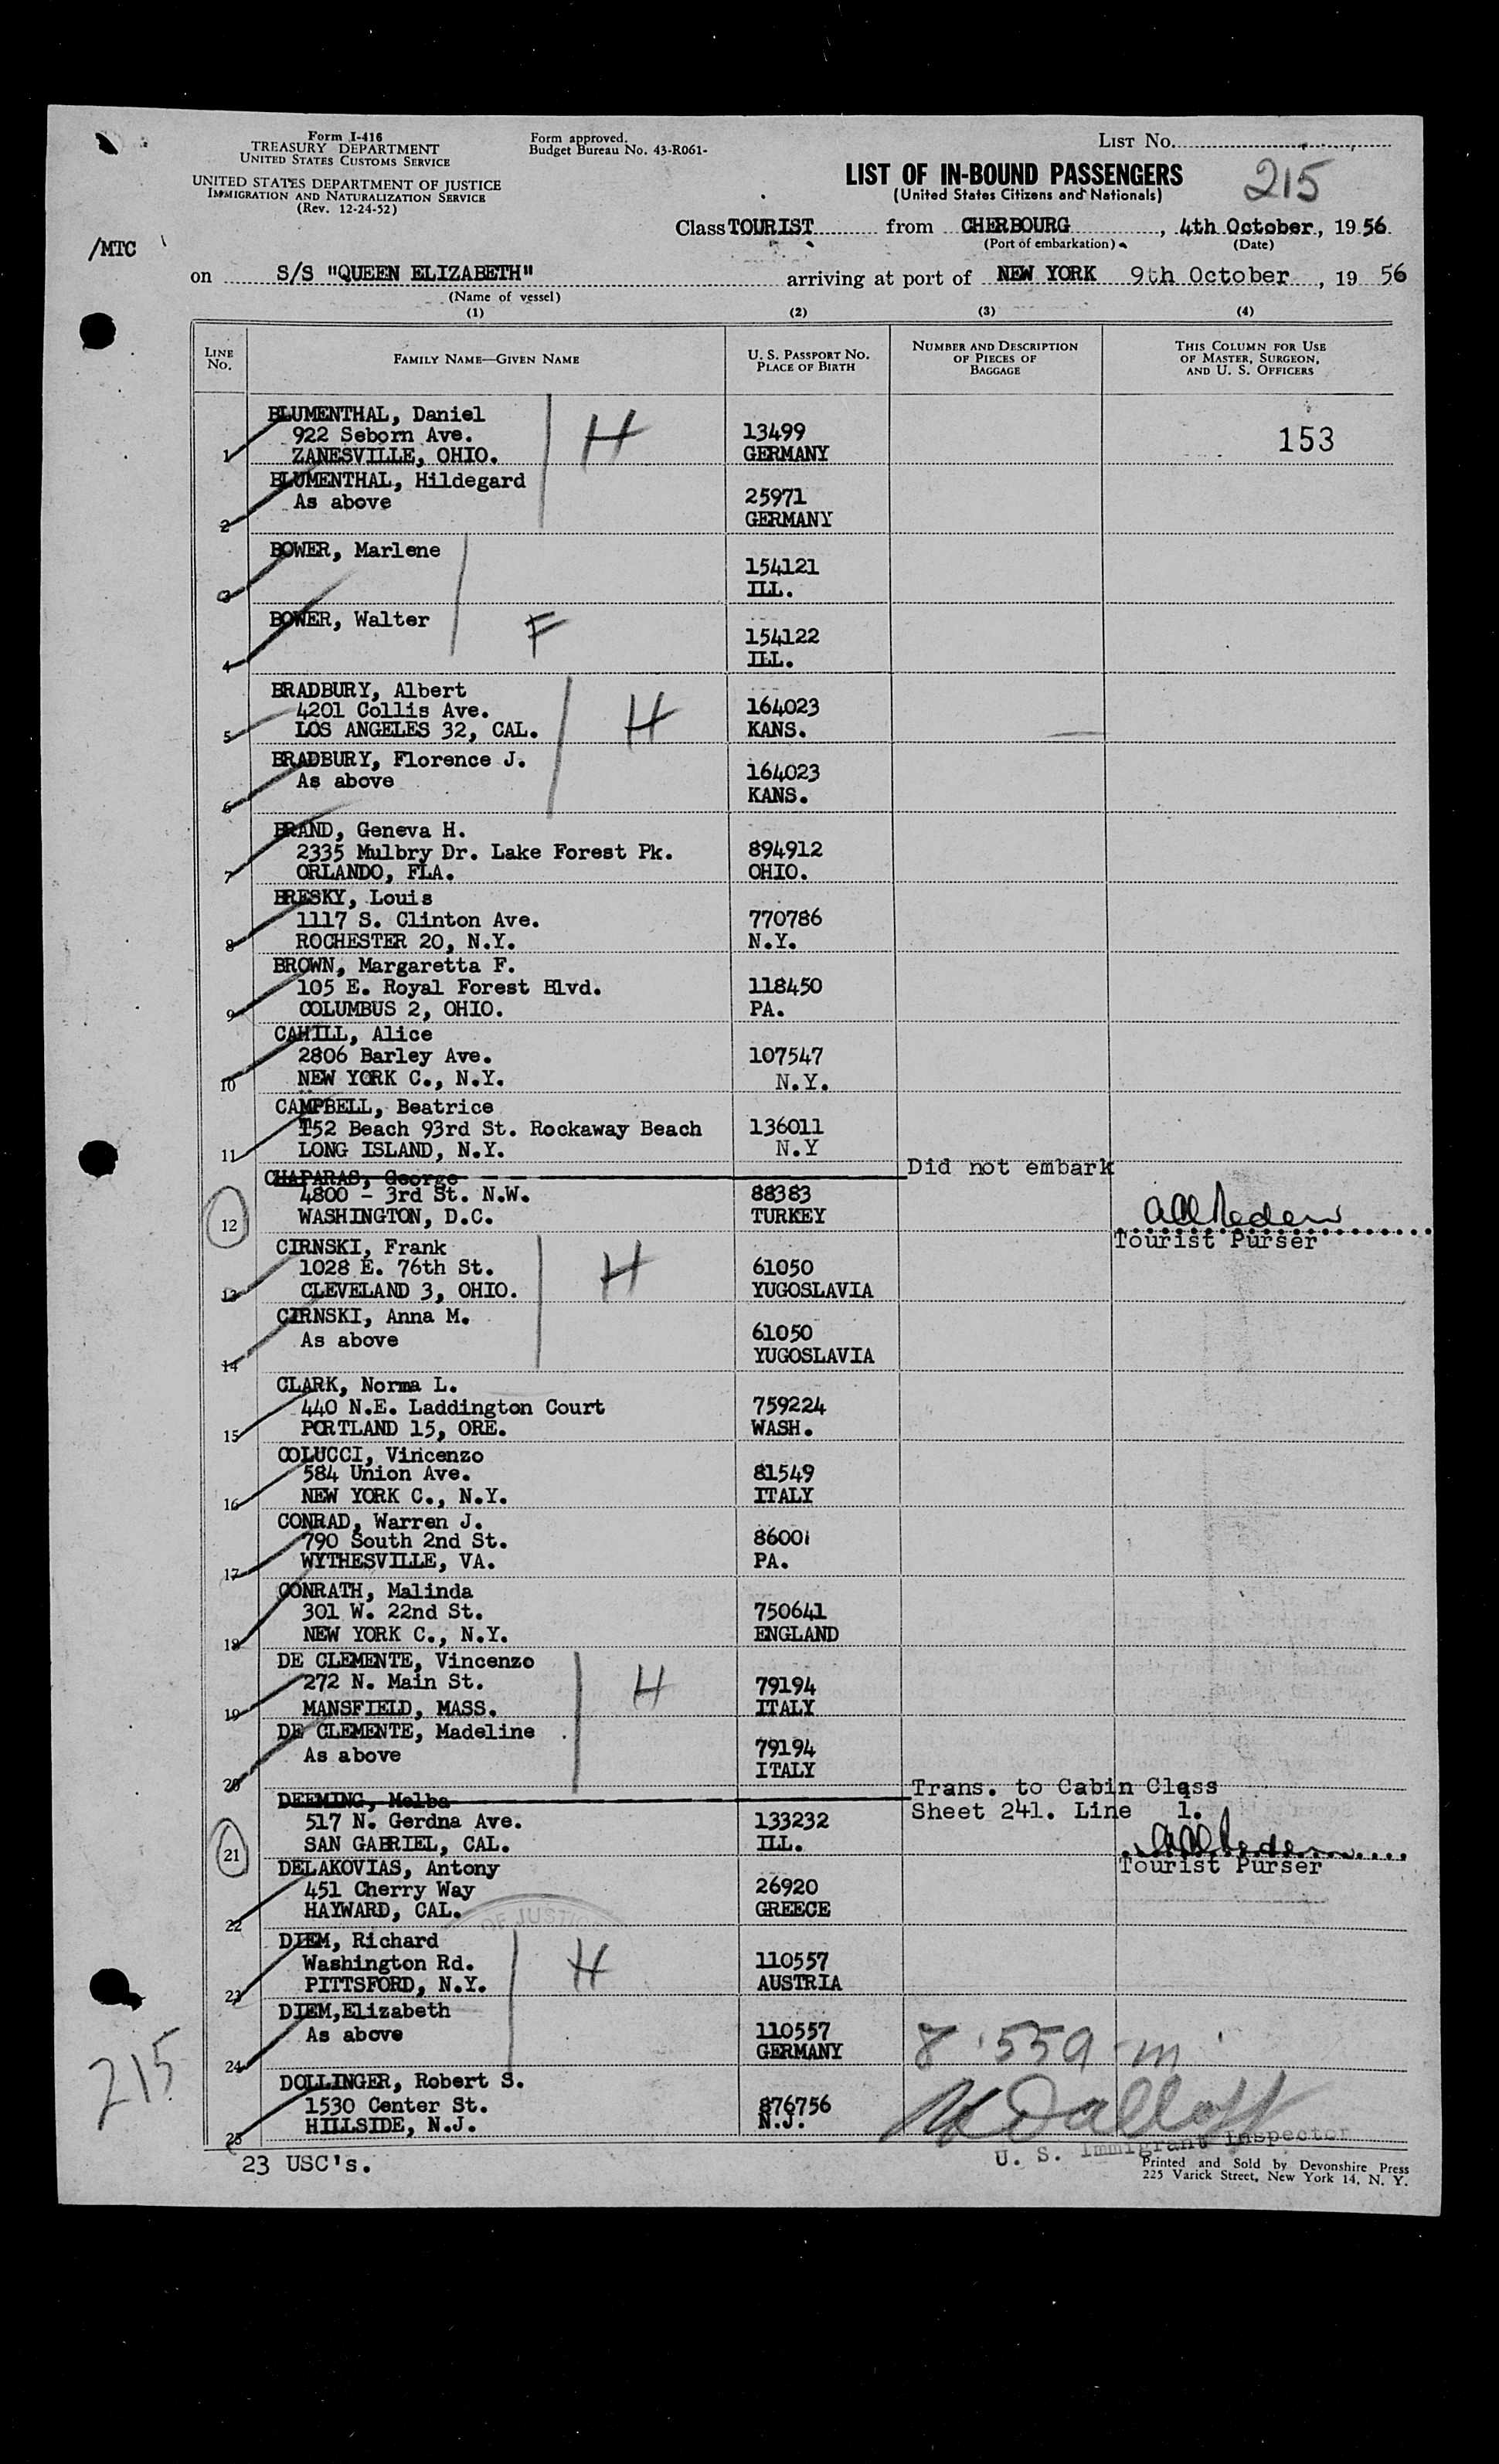 Form I-416
TREASURY DEPARTMENT
UNITED STATES CUSTOMS SERVICE
UNITED STATES DEPARTMENT OF JUSTICE
IMMIGRATION AND NATURALIZATION SERVICE
(Rev. 12-24-52)
Form approved.
Budget Bureau No. 43-R061-
LIST NO.
LIST OF IN-BOUND PASSENGERS
(United States Citizens and Nationals)
215
/MTC
Class TOURIST from CHERBOURG, 4th October, 1956.
(Port of embarkation) (Date)
on S/S "QUEEN ELIZABETH" arriving at port of NEW YORK 9th October, 19 56
(Name of vessel)
(1) (2) (3) (4)
LINE NO. FAMILY NAME—GIVEN NAME U. S. PASSPORT NO. PLACE OF BIRTH NUMBER AND DESCRIPTION OF PIECES OF BAGGAGE THIS COLUMN FOR USE OF MASTER, SURGEON, AND U. S. OFFICERS
BLUMENTHAL, Daniel
922 Seborn Ave. H 13499 153
1 ZANESVILLE, OHIO. GERMANY
BLUMENTHAL, Hildegard
As above 25971
2 GERMANY
BOWER, Marlene
154121
3 ILL.
BOWER, Walter F
154122
4 ILL.
BRADBURY, Albert
4201 Collis Ave. H 164023
5 LOS ANGELES 32, CAL. KANS.
BRADBURY, Florence J.
As above 164023
6 KANS.
BRAND, Geneva H.
2335 Mulbry Dr. Lake Forest Pk. 894912
7 ORLANDO, FLA. OHIO.
BRESKY, Louis
1117 S. Clinton Ave. 770786
8 ROCHESTER 20, N.Y. N.Y.
BROWN, Margaretta F.
105 E. Royal Forest Blvd. 118450
9 COLUMBUS 2, OHIO. PA.
CAHILL, Alice
2806 Barley Ave. 107547
10 NEW YORK C., N.Y. N.Y.
CAMPBELL, Beatrice
152 Beach 93rd St. Rockaway Beach 136011
11 LONG ISLAND, N.Y. N.Y
CHAPARAS, George Did not embark
4800 - 3rd St. N.W. 88383
12 WASHINGTON, D.C. TURKEY
Tourist Purser
CIRNSKI, Frank
1028 E. 76th St. H 61050
13 CLEVELAND 3, OHIO. YUGOSLAVIA
CIRNSKI, Anna M.
As above 61050
14 YUGOSLAVIA
CLARK, Norma L.
440 N.E. Laddington Court 759224
15 PORTLAND 15, ORE. WASH.
COLUCCI, Vincenzo
584 Union Ave. 81549
16 NEW YORK C., N.Y. ITALY
CONRAD, Warren J.
790 South 2nd St. 86001
17 WYTHESVILLE, VA. PA.
CONRATH, Malinda
301 W. 22nd St. 750641
18 NEW YORK C., N.Y. ENGLAND
DE CLEMENTE, Vincenzo
272 N. Main St. H 79194
19 MANSFIELD, MASS. ITALY
DE CLEMENTE, Madeline
As above 79194
20 ITALY
DEEMING, Melba Trans. to Cabin Class
517 N. Gerdna Ave. 133232 Sheet 241. Line 1.
21 SAN GABRIEL, CAL. ILL.
Tourist Purser
DELAKOVIAS, Antony
451 Cherry Way 26920
22 HAYWARD, CAL. GREECE
OF JUSTICE
DIEM, Richard
Washington Rd. H 110557
23 PITTSFORD, N.Y. AUSTRIA
DIEM, Elizabeth
As above 110557
24 GERMANY
DOLLINGER, Robert S.
1530 Center St. 876756
25 HILLSIDE, N.J. N.J.
U. S. Immigrant Inspector
215
23 USC's.
Printed and Sold by Devonshire Press
225 Varick Street, New York 14, N. Y.